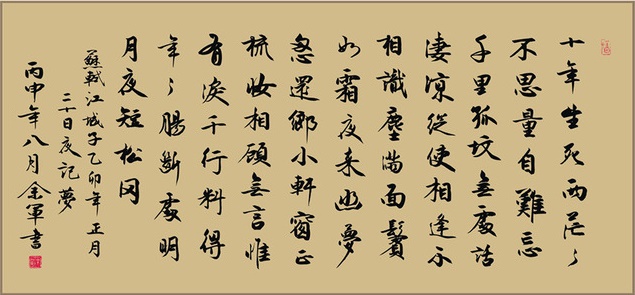 十年生死兩茫々
不思量自難忘
千里孤墳無處話
淒涼從使相逢不
相識塵滿面鬢
如霜夜來幽夢
忽還鄉小軒窗正
梳妝相顧無言惟
有淚千行料得
年々腸斷處明
月夜短松岡
蘇軾江城子乙卯年正月
二十日夜記夢
丙申年八月余軍書